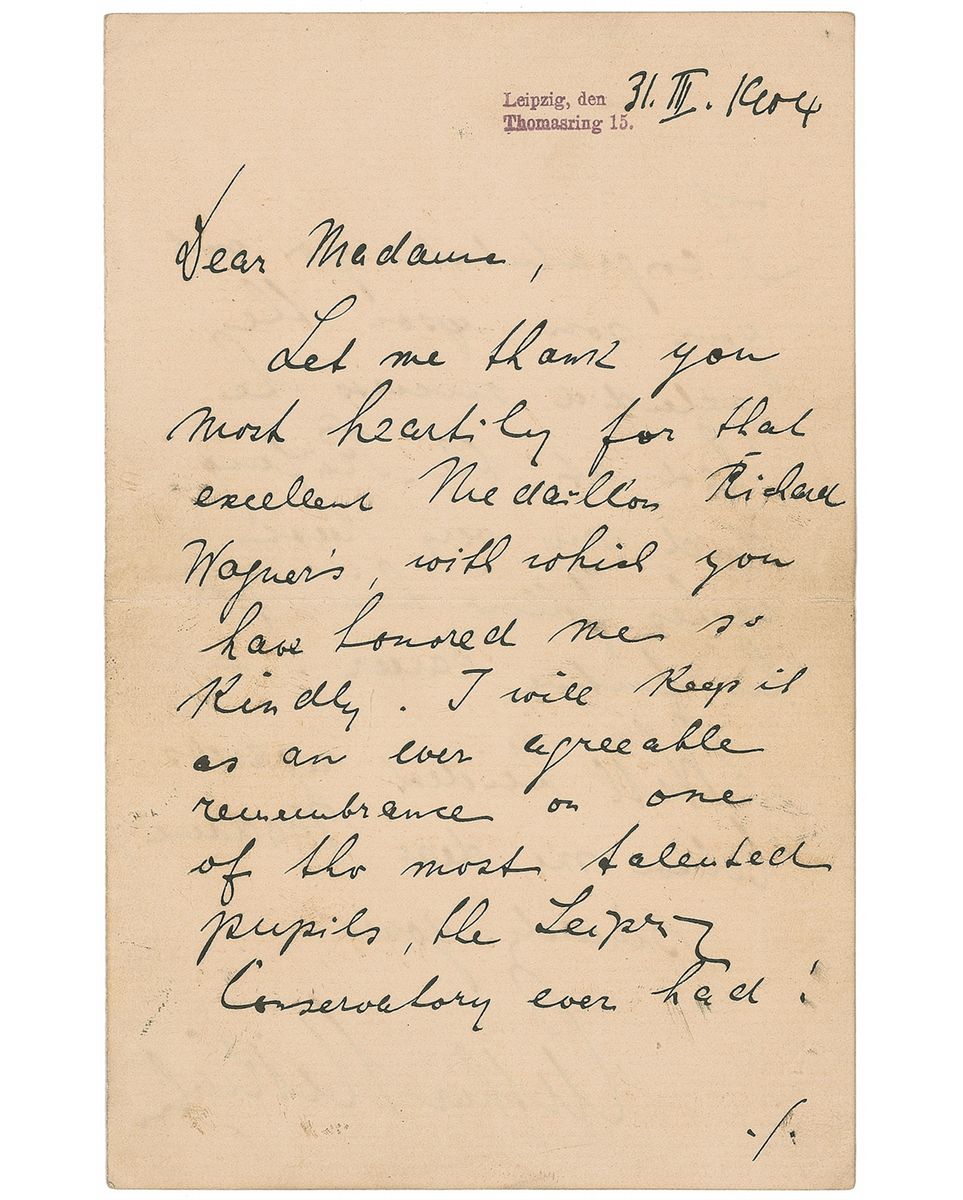 Leipzig, den 31. III. 1904
Thomasring 15.
Dear Madame,
Let me thank you
most heartily for that
excellent Medaillon Richard
Wagner's, with which you
have honored me so
kindly. I will keep it
as an ever agreeable
remembrance on one
of the most talented
pupils, the Leipzig
Conservatory ever had!
./.